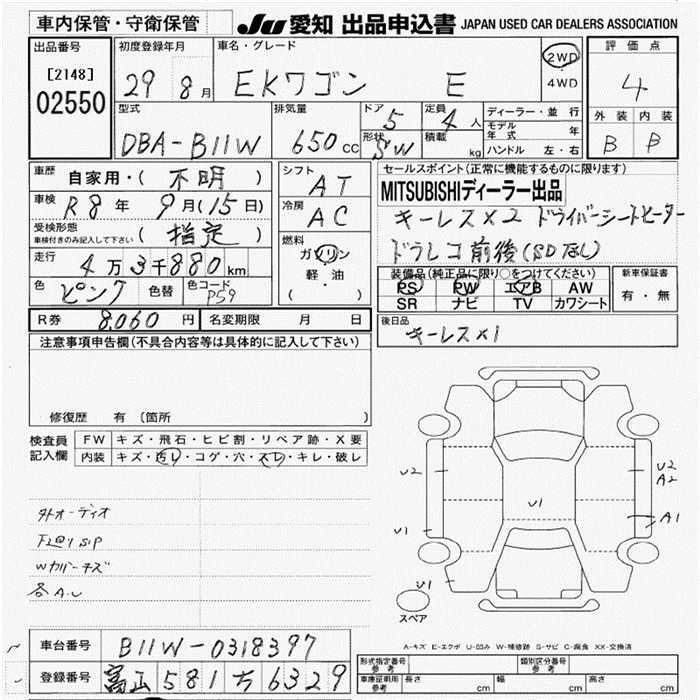 車内保管・守衛保管
JU 愛知 出品申込書 JAPAN USED CAR DEALERS ASSOCIATION
出品番号
[2148]
02550
初度登録年月
29 8月
車名・グレード
EKワゴン E
2WD
・
4WD
評価点
4
外装 内装
B B
型式
DBA-B11W
排気量
650cc
ドア
5
形状
SW
定員
4人
積載
kg
ディーラー・並行
モデル年式 年
ハンドル 左・右
車歴 自家用・( 不明 )
車検 R8年 9月(15日)
受検形態
車検付きのみ記入して下さい ( 指定 )
走行 4万3千880km
色 ピンク 色替 色コード P59
R券 8,060円 名変期限 月 日
シフト
AT
冷房
AC
燃料
ガソリン
軽・油
( )
セールスポイント(正常に機能するものに限ります)
MITSUBISHIディーラー出品
キーレス×2 ドライバーシートヒーター
ドラレコ前後(SDなし)
装備品(純正品に限り○をつけてください)
PS PW エアB AW
SR ナビ TV カワシート
新車保証書
有・無
後日品
キーレス×1
注意事項申告欄(不具合内容等は具体的に記入して下さい)
修復歴 有(箇所 )
検査員記入欄
FW キズ・飛石・ヒビ割・リペア跡・X要
内装 キズ・汚レ・コゲ・穴・スレ・キレ・破レ
外オーディオ
Wカバーキズ
各A.U
U2
U1
U1
U1
U2
A2
A1
スペア
A-キズ E-エクボ U-凹み W-補修跡 S-サビ C-腐食 XX-交換済
車台番号 B11W-0318397
登録番号 富山 581 ち 6329
形式指定番号
参考
類別区分番号
参考
車庫証明用
参考
長さ cm 幅 cm 高さ cm